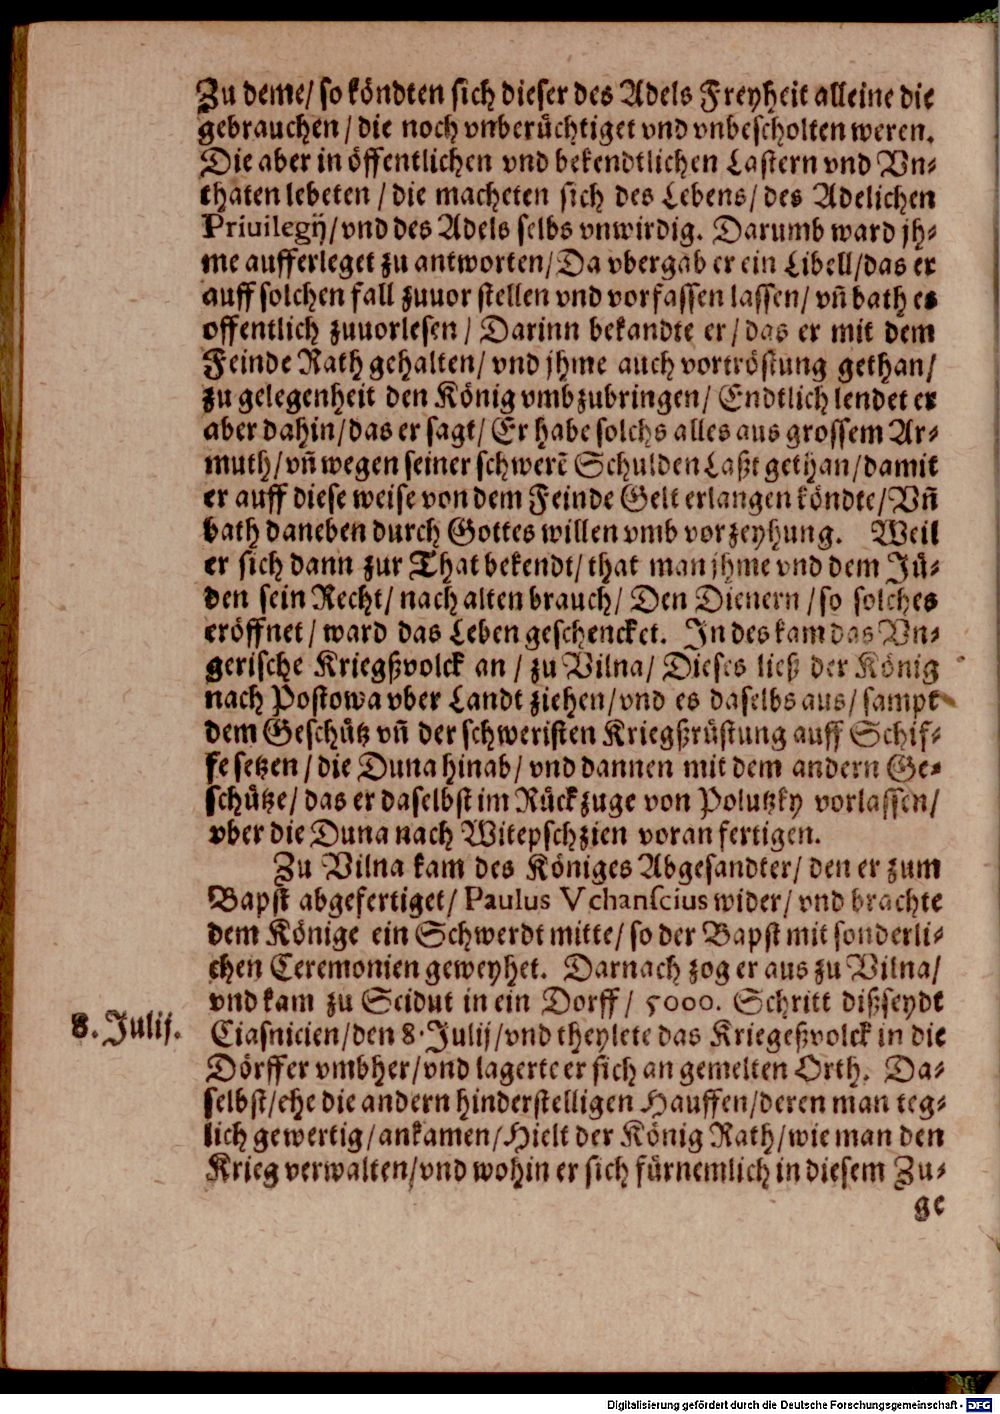 Zu deme/ so köndten sich dieser des Adels Freyheit alleine die
gebrauchen/ die noch vnberüchtiget vnd vnbescholten weren.
Die aber in öffentlichen vnd bekendtlichen Lastern vnd Vn-
thaten lebeten/ die macheten sich des Lebens/ des Adelichen
Priuilegij/ vnd des Adels selbs vnwirdig. Darumb ward jh-
me aufferleget zu antworten/ Da vbergab er ein Libell/ das er
auff solchen fall zuuor stellen vnd vorfassen lassen/ vn̄ bath es
offentlich zuuorlesen/ Darinn bekandte er/ das er mit dem
Feinde Rath gehalten/ vnd jhme auch vortröstung gethan/
zu gelegenheit den König vmbzubringen/ Endtlich lendet er
aber dahin/ das er sagt/ Er habe solchs alles aus grossem Ar-
muth/ vn̄ wegen seiner schwerē Schulden Laßt gethan/ damit
er auff diese weise von dem Feinde Gelt erlangen köndte/ Vn̄
bath daneben durch Gottes willen vmb vorzeyhung. Weil
er sich dann zur That bekendt/ that man jhme vnd dem Jü-
den sein Recht/ nach alten brauch/ Den Dienern/ so solches
eröffnet/ ward das Leben geschencket. In des kam das Vn-
gerische Kriegßvolck an/ zu Vilna/ Dieses ließ der König
nach Postowa vber Landt ziehen/ vnd es daselbs aus/ sampt
dem Geschütz vn̄ der schweristen Kriegßrüstung auff Schif-
fe setzen/ die Duna hinab/ vnd dannen mit dem andern Ge-
schütze/ das er daselbst im Rückzuge von Polutzky vorlassen/
vber die Duna nach Witepschzien voran fertigen.
Zu Vilna kam des Königes Abgesandter/ den er zum
Bapst abgefertiget/ Paulus Vchanscius wider/ vnd brachte
dem Könige ein Schwerdt mitte/ so der Bapst mit sonderli-
chen Ceremonien geweyhet. Darnach zog er aus zu Vilna/
vnd kam zu Scidut in ein Dorff/ 5000. Schritt dißseydt
8. Julij.
Ciasnicien/ den 8. Julij/ vnd theylete das Kriegeßvolck in die
Dörffer vmbher/ vnd lagerte er sich an gemelten Orth. Da-
selbst/ ehe die andern hinderstelligen Hauffen/ deren man teg-
lich gewertig/ ankamen/ Hielt der König Rath/ wie man den
Krieg verwalten/ vnd wohin er sich fürnemlich in diesem Zu-
ge
Digitalisierung gefördert durch die Deutsche Forschungsgemeinschaft - DFG